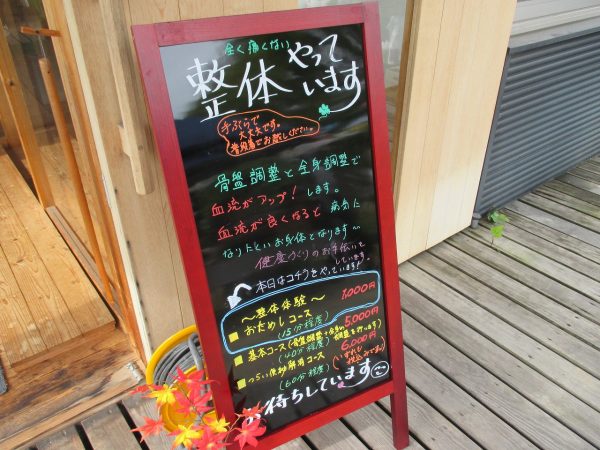 全く痛くない
整体やって
います
手ぶらで
大丈夫です。
普段着でお試しください。
骨盤調整と全身調整で
血流がアップ!します。
血流が良くなると 病気に
なりにくいお身体となります〜
健康づくりのお手伝いを
しています
本日はコチラをやっています!
〜整体体験〜
■おためしコース 1,000円
(15分程度)
■基本コース(骨盤調整+全身調整を行います) 5,000円
(40分程度)
■つらい便秘解消コース 6,000円
(60分程度) (いずれも
税込みです)
お待ちしています